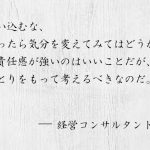 い込むな、
ったら気分を変えてみてはどうか
責任感が強いのはいいことだが、
とりをもって考えるべきなのだ。
― 経営コンサルタント